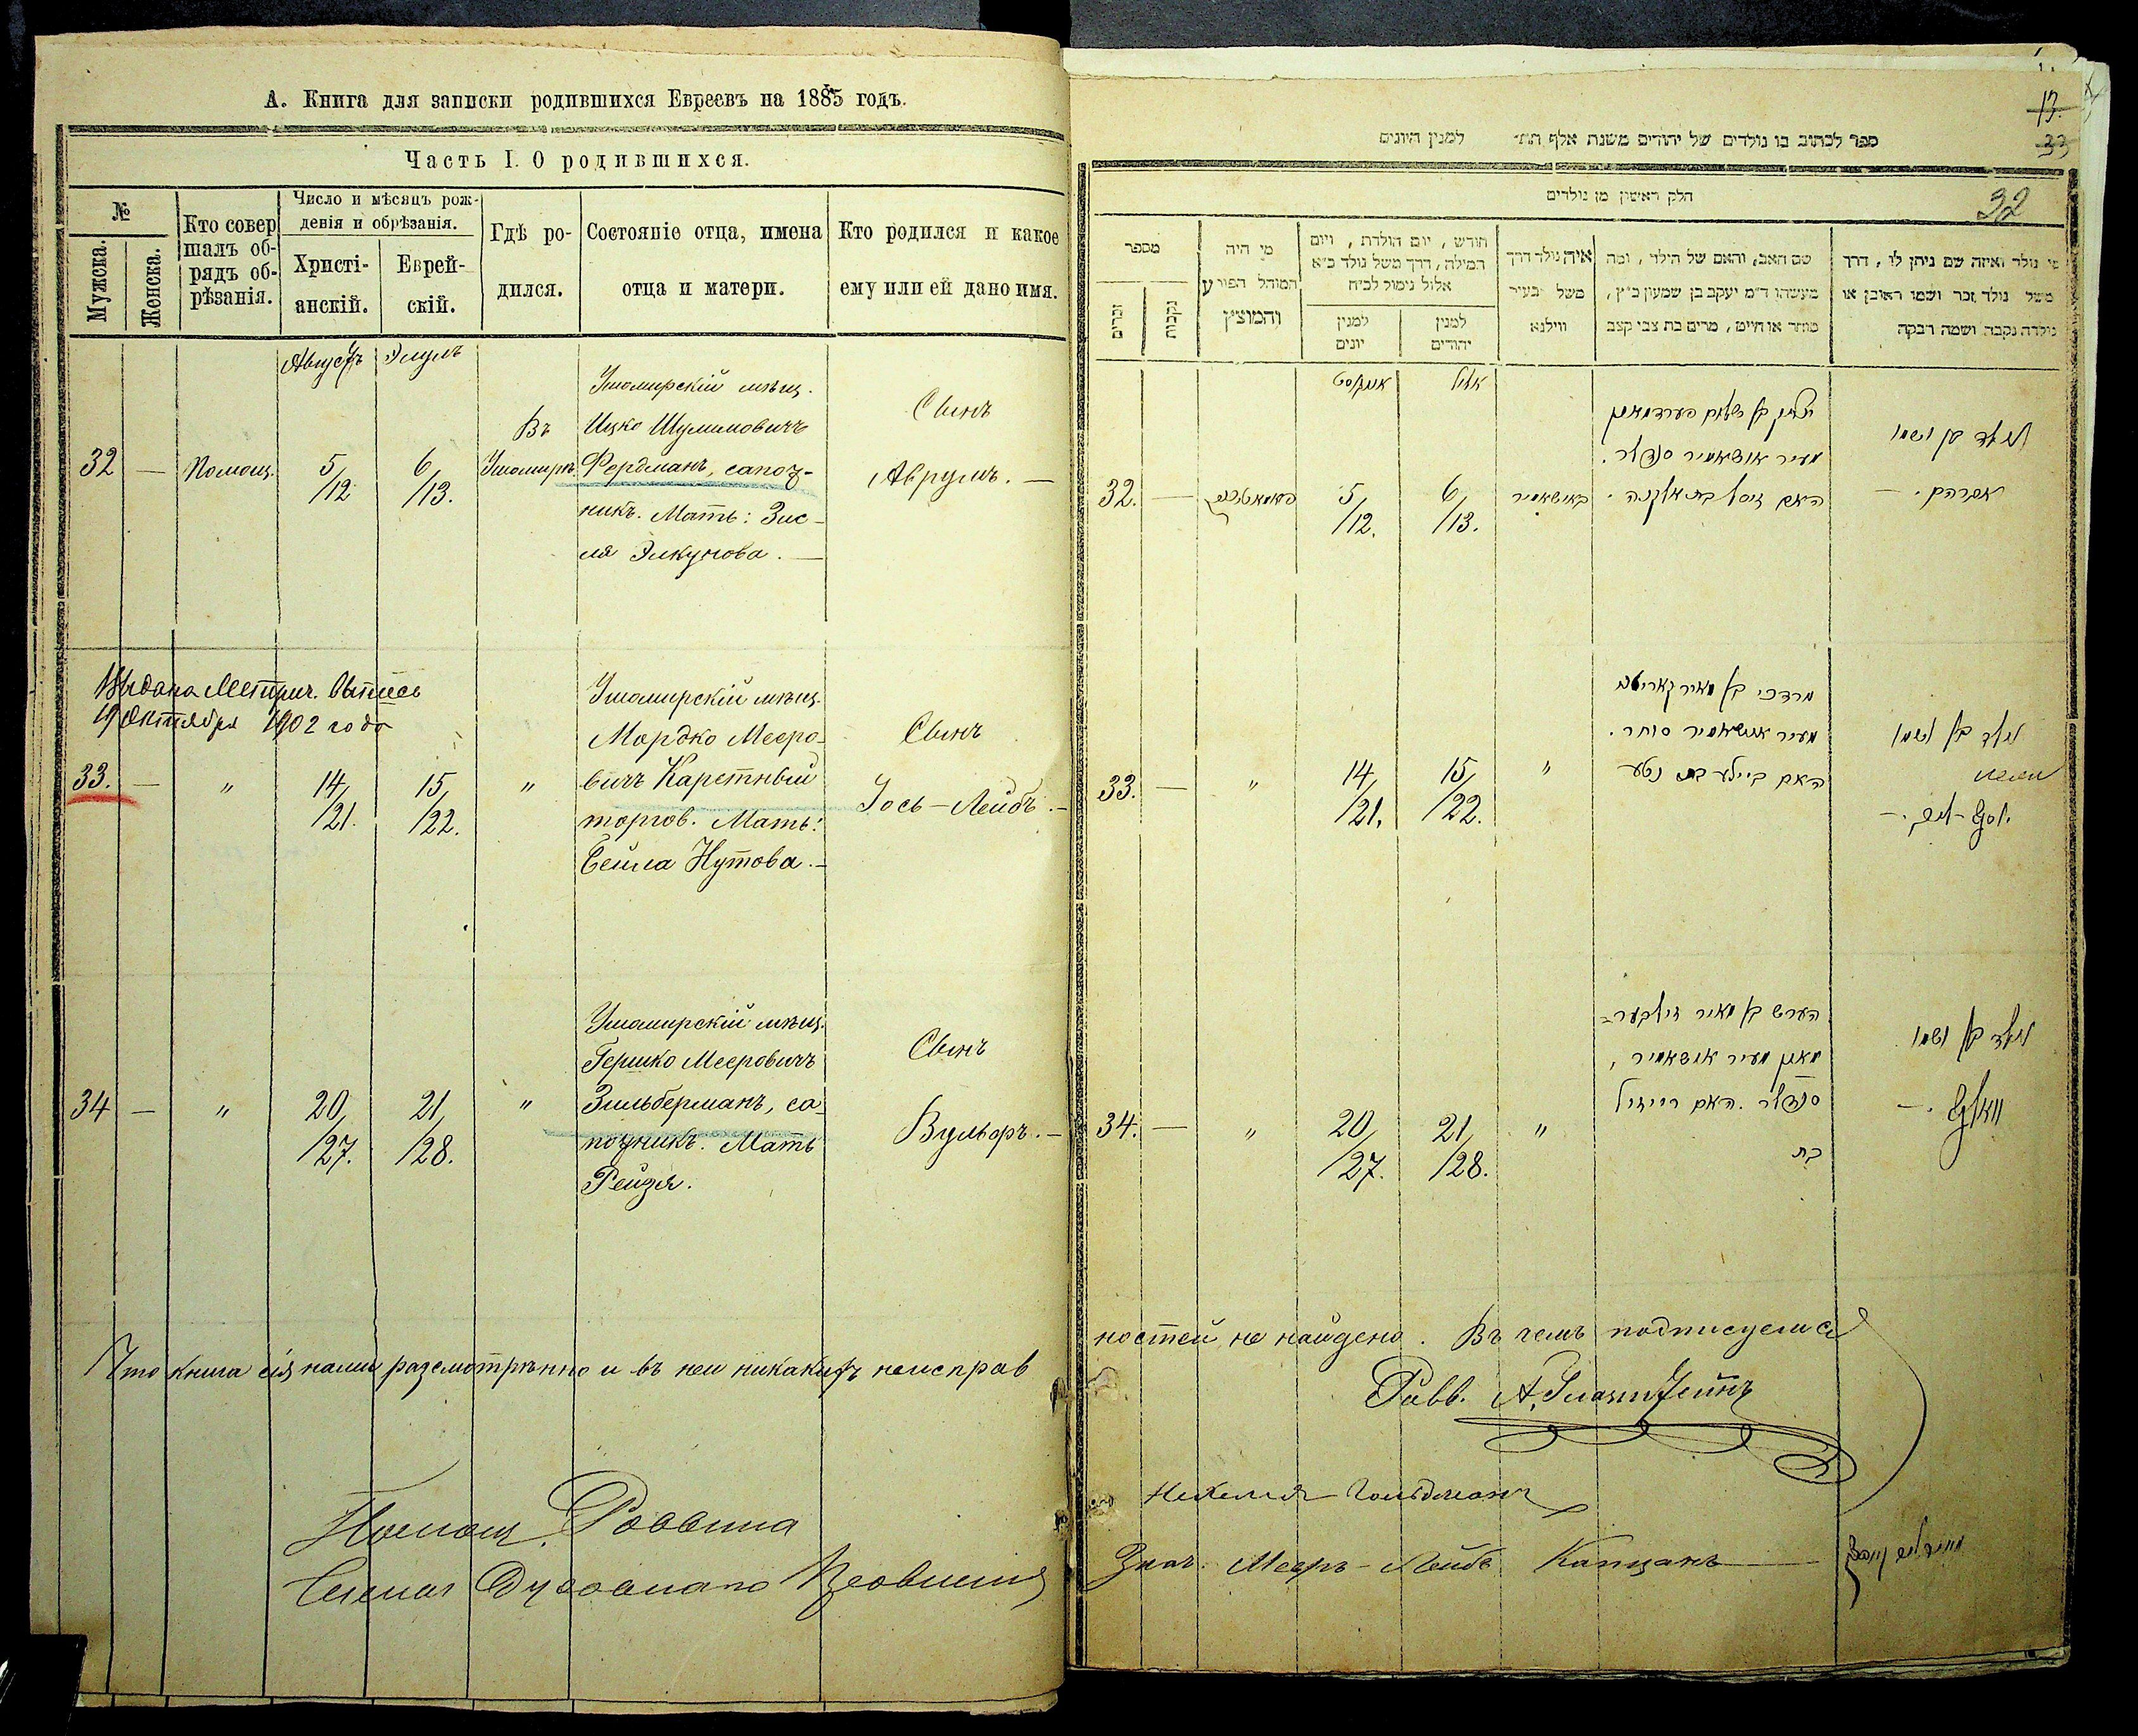 А. Книга для записки родившихся Евреевъ на 1885 годъ.
Часть I. О родившихся.
№
Мужска.
Женска.
Кто совер
шалъ об-
рядъ об-
рѣзанія.
Число и мѣсяцъ рож-
денія и обрѣзанія.
Христі-
анскій.
Еврей-
скій.
Гдѣ ро-
дился.
Состояніе отца, имена
отца и матери.
Кто родился и какое
ему или ей дано имя.
Августъ Элулъ
32 — Помощ. 5/12 6/13.
Въ
Ушомирѣ
Ушомирскій мѣщ.
Ицко Шулимовичъ
Фердманъ, сапож-
никъ. Мать: Зис-
ля Элкунова. —
Сынъ
Аврумъ. —
Выдана Метрич. Выпись
19 Октября 1902 года
33. — " 14/21. 15/22. "
Ушомирскій мѣщ.
Мордко Мееро-
вичъ Каретный
торгов. Мать:
Бейла Нутова. —
Сынъ
Іось-Лейбъ. —
34 — " 20/27. 21/28. "
Ушомирскій мѣщ.
Гершко Мееровичъ
Зильберманъ, са-
пожникъ. Мать
Рейзя.
Сынъ
Вульфъ. —
Что книга сія нами разсмотрѣнно и въ ней никакихъ неисправ
Помощ. Раввина
13.
33
ספר לכתוב בו נולדים של יהודים משנת אלף תת׳ למנין היונים
32
חלק ראשון מן נולדים
מספר
זכרים
נקבות
מי היה
המוהל הפורע
והמוצץ
חודש, יום הולדת, ויום
המילה, דרך משל נולד כ״א
אלול נימול לכ״ח
למנין
יונים
למנין
יהודים
איה נולד דרך
משל בעיר
ווילנא
שם האב, והאם של הילד, ומה
מעשהו ד״מ יעקב בן שמעון כ״ץ,
סוחר או חייט, מרים בת צבי קצב
מי נולד ואיזה שם ניתן לו, דרך
משל נולד זכר ושמו ראובן או
נולדה נקבה ושמה רבקה
אויגוסט אלול
32. — 5/12. 6/13. באושאמיר
יצחק בן שלום פערדמאן
מעיר אושאמיר סנדלר.
האם זיסל בת אלקנה.
נולד בן ושמו
אברהם. —
33. — " 14/21. 15/22. "
מרדכי בן מאיר קאריטנע
מעיר אושאמיר סוחר.
האם ביילע בת נטע
נולד בן ושמו
יוסף-ליב. —
34. — " 20/27. 21/28. "
הערש בן מאיר זילבער-
מאן מעיר אושאמיר,
סנדלר. האם רייזיל
בת
נולד בן ושמו
וואלף. —
ностей не найдено. Въ чемъ подписуемся
Равв.
Нехемія Гольдманъ
Знач. Мееръ-Лейбъ Капцанъ —